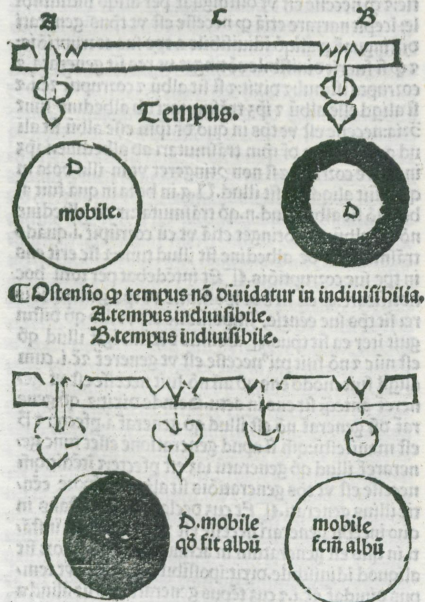 A C B
Tempus.
D D
mobile.
Ostensio ꝙ tempus nõ diuidatur in indiuisibilia.
A.tempus indiuisibile.
B.tempus indiuisibile.
D.mobile
qđ fit albũ
mobile
fcm̃ albũ